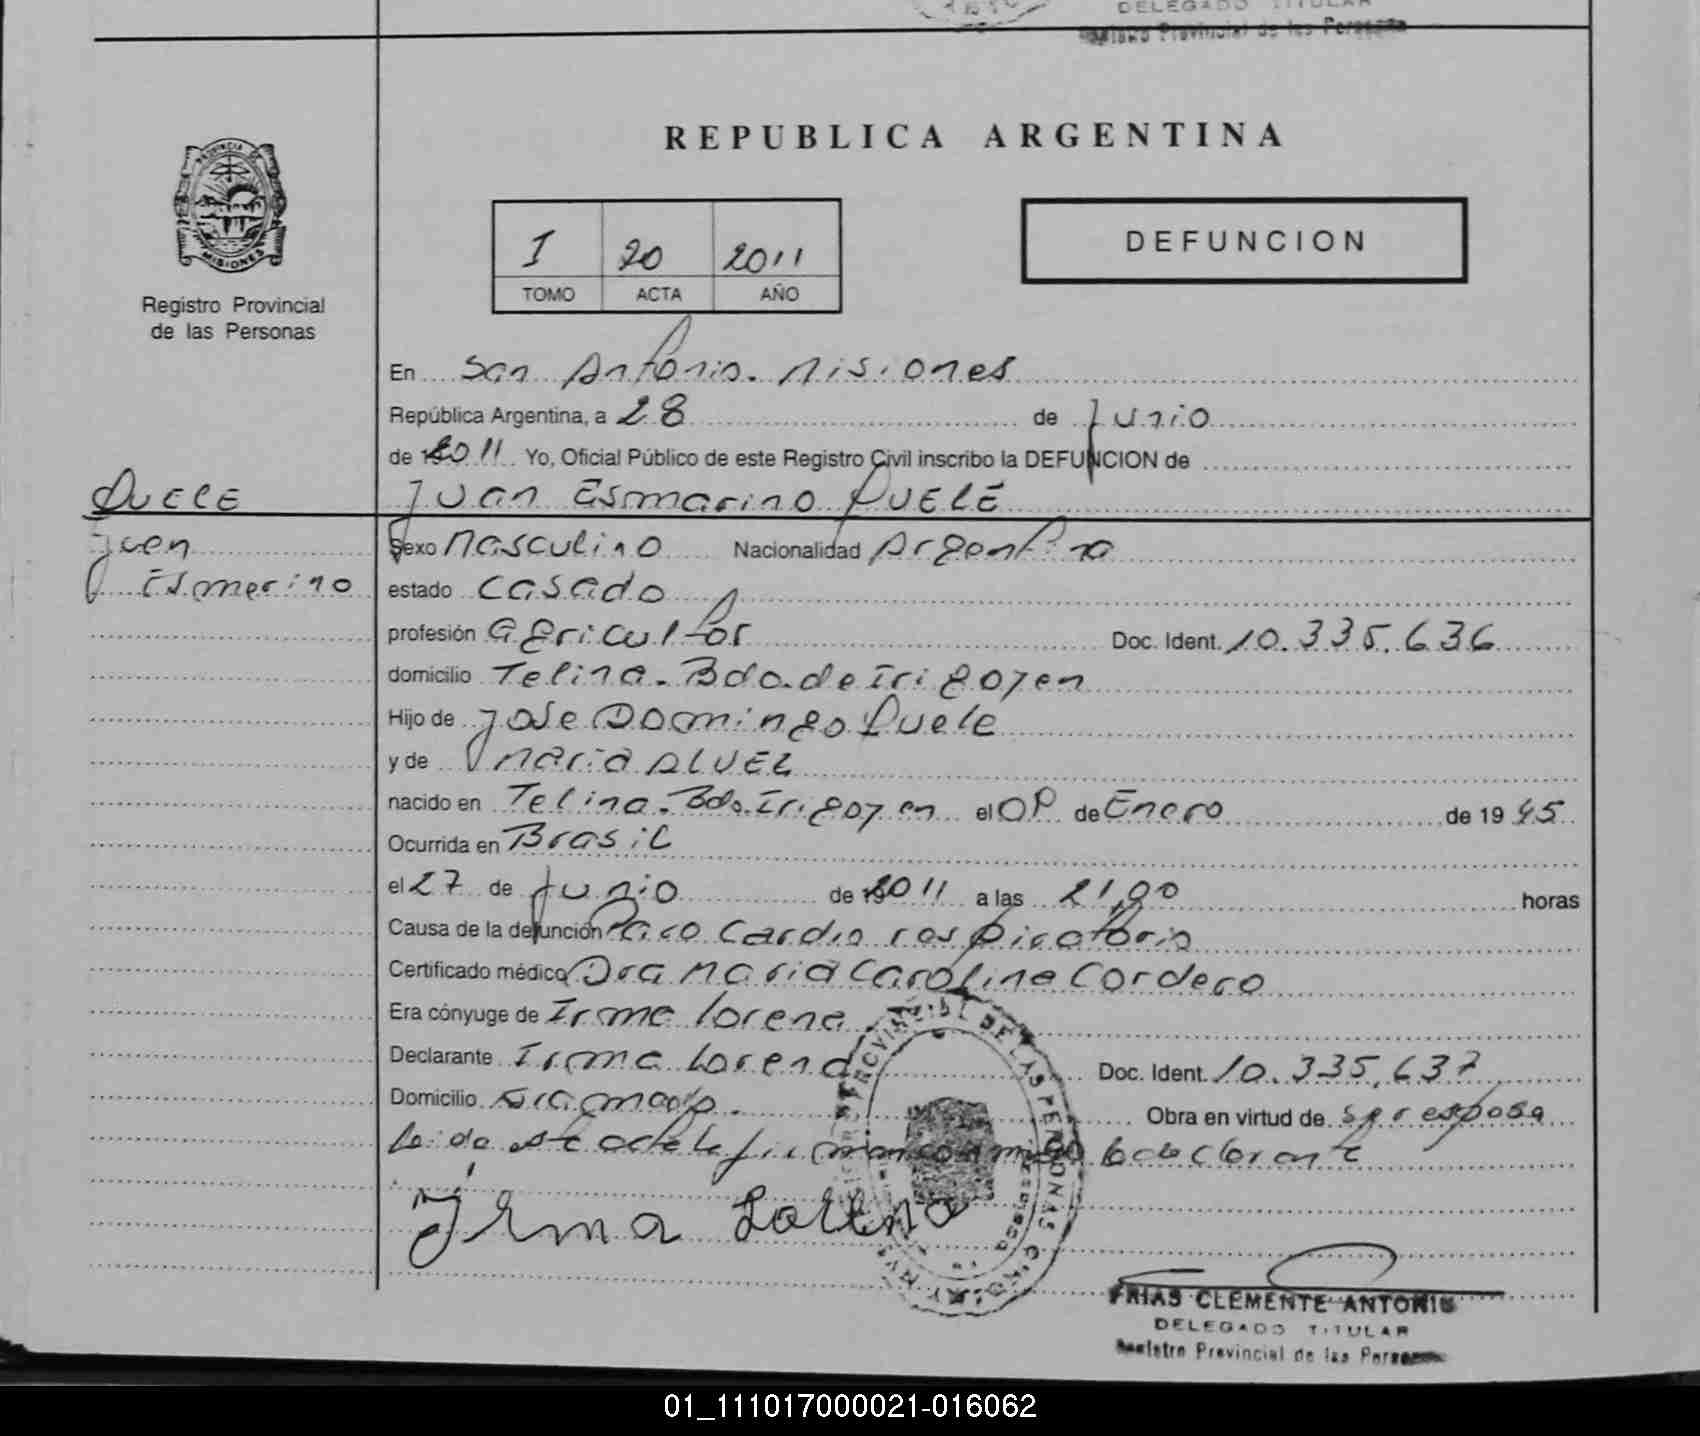 DELEGADO TITULAR
Registro Provincial de las Personas
REPUBLICA ARGENTINA
PROVINCIA DE
MISIONES
Registro Provincial
de las Personas
I 20 2011
TOMO ACTA AÑO
DEFUNCION
En San Antonio. Misiones
República Argentina, a 28 de Junio
de 2011 Yo, Oficial Público de este Registro Civil inscribo la DEFUNCION de
Juan Esmarino DUELE
DUELE
Juan
Esmerino
Sexo Masculino Nacionalidad Argentina
estado casado
profesión agricultor Doc. Ident. 10.335.636
domicilio Telina. Bdo. de Irigoyen
Hijo de Jose Domingo Duele
y de Maria ALVEZ
nacido en Telina. Bdo. Irigoyen el de Enero de 19 45
Ocurrida en Brasil
el 27 de Junio de 2011 a las 21,00 horas
Causa de la defunción Paro Cardio respiratorio
Certificado médico Dra Maria Carolina Cordero
Era cónyuge de Irma lorena
Declarante Irma Lorena Doc. Ident. 10.335.637
Domicilio Obra en virtud de ser esposa
Leida el acta la firman conmigo la declarante
Irma Lorena
PROVINCIAL DE LAS PERSONAS
FRIAS CLEMENTE ANTONIO
DELEGADO TITULAR
Registro Provincial de las Personas
01_111017000021-016062